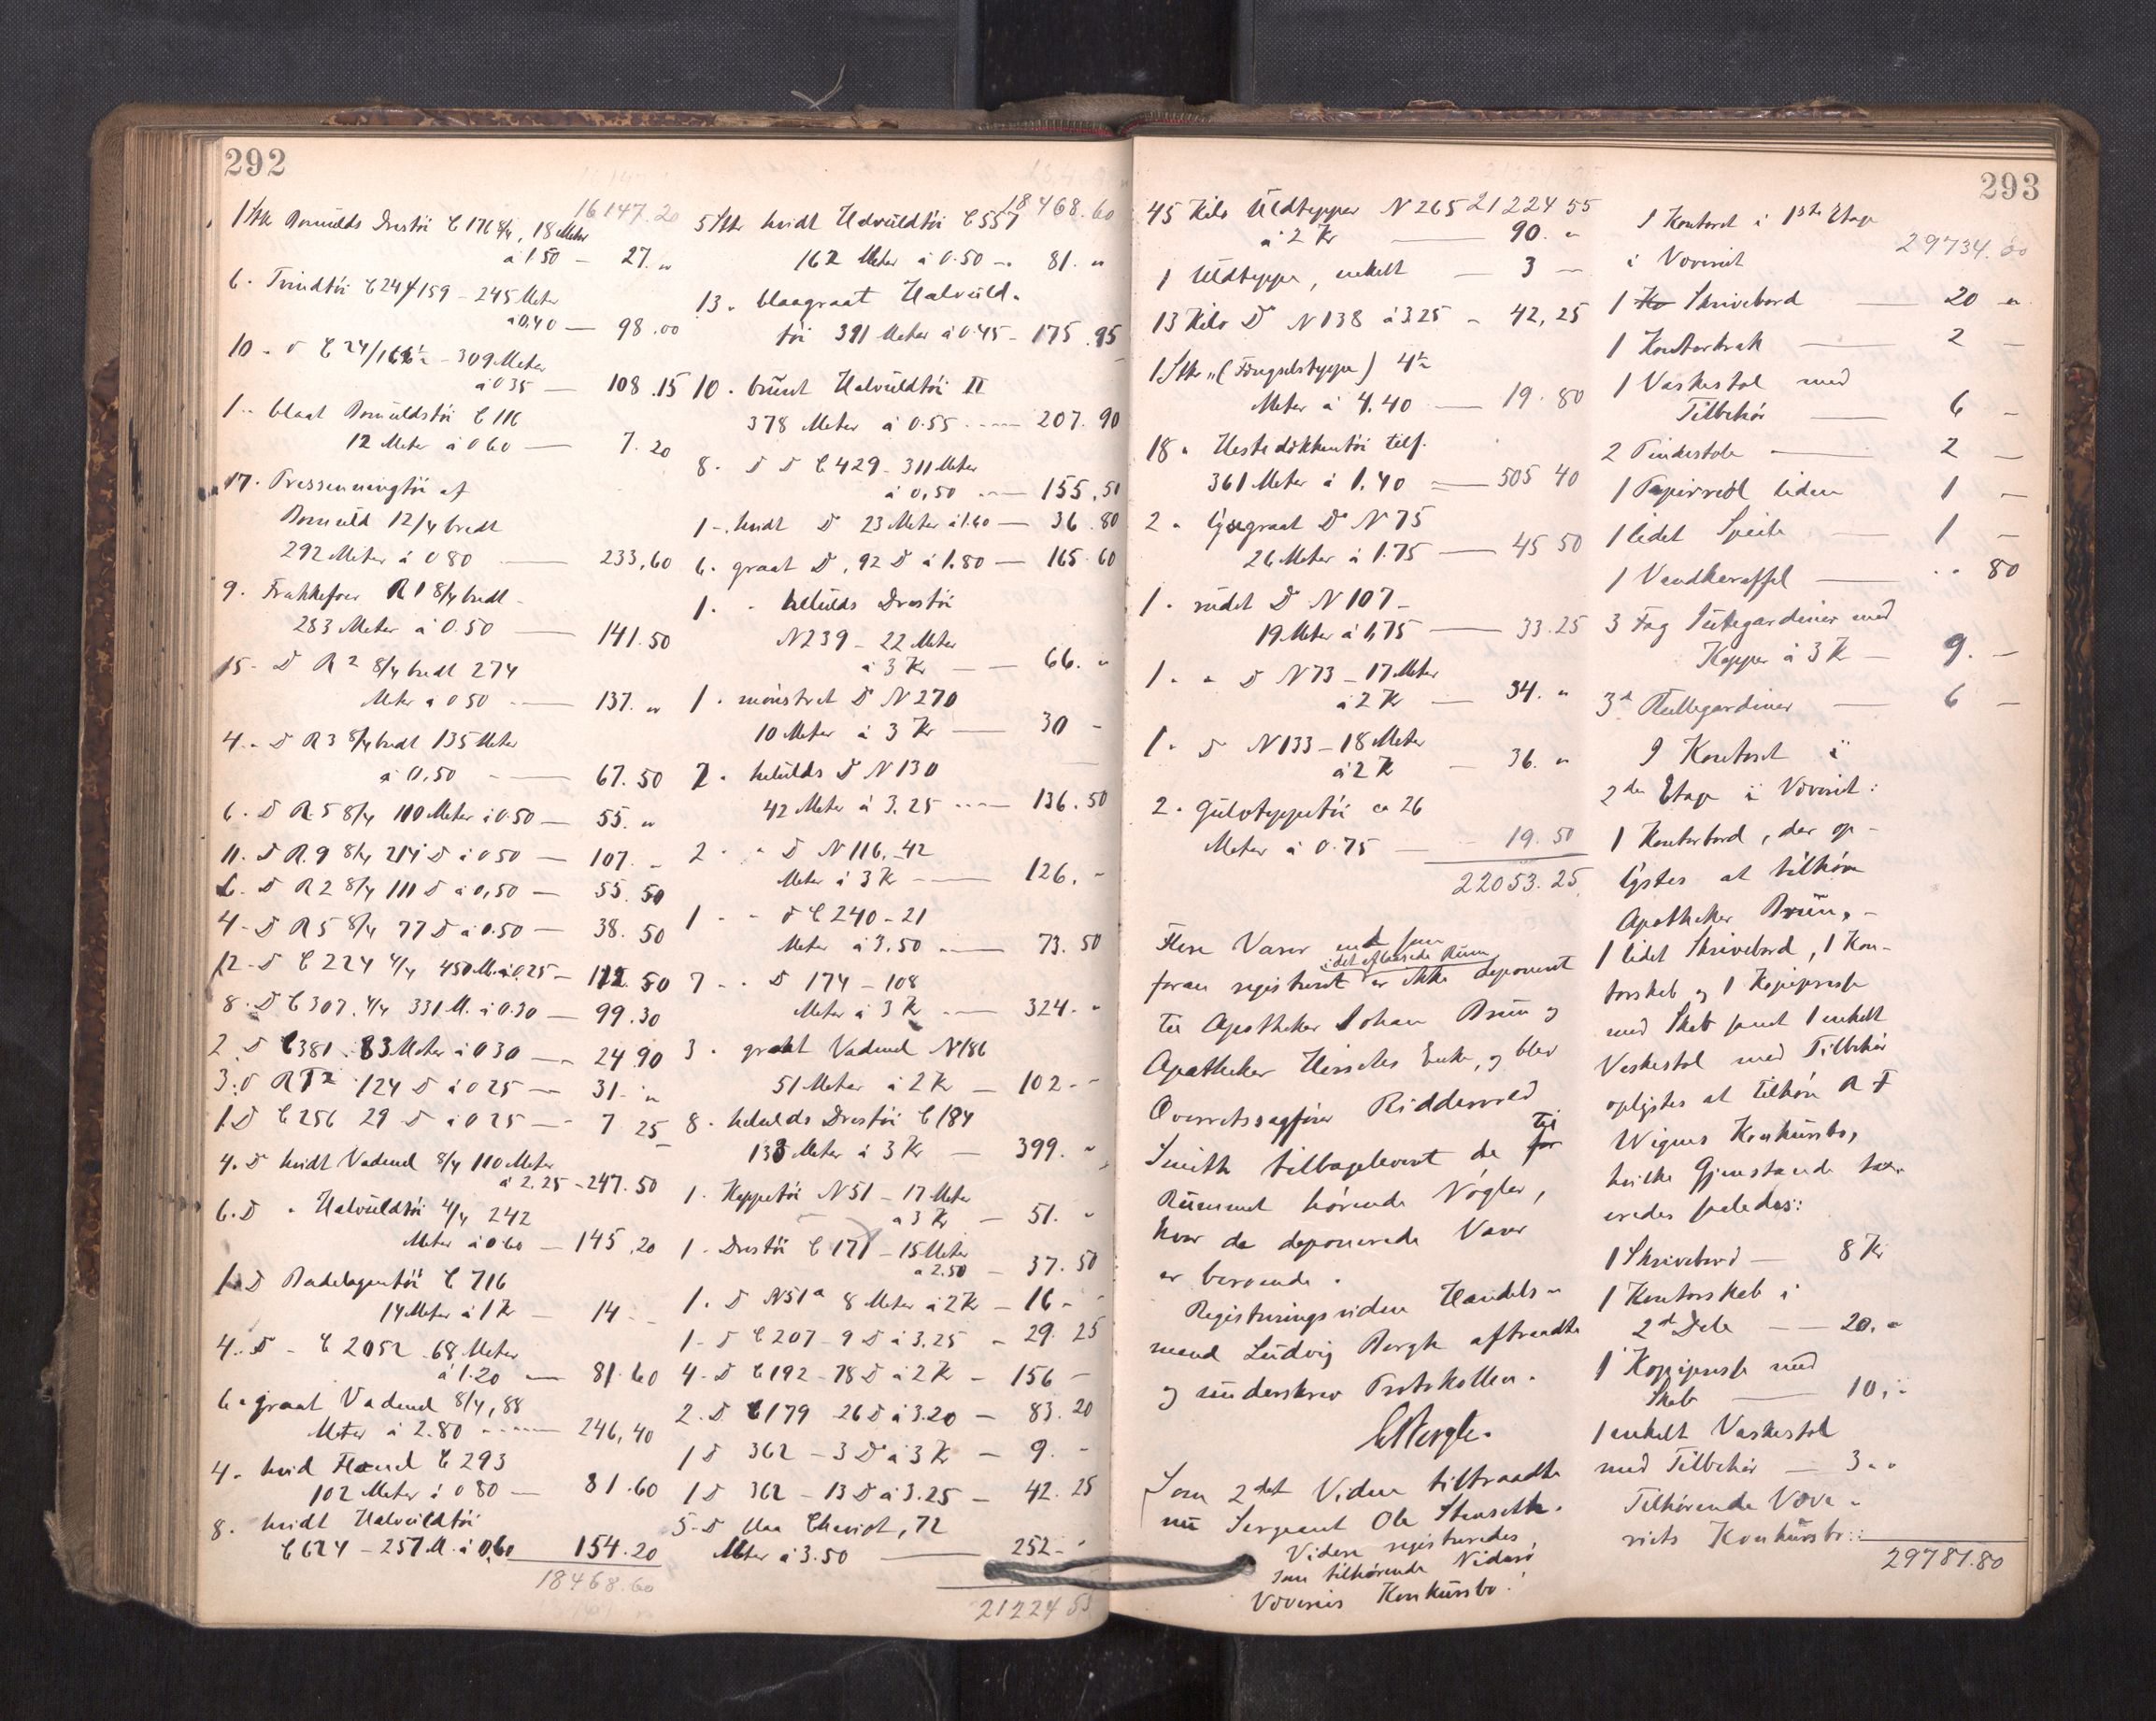 292
16147.20
1 Stk Bomulds Drestöi C 176 8/4, 18 Meter
à 1.50 — 27. "
6 - Tvindtöi C 244/159 - 245 Meter
à 0.40 — 98.00
10 - D C 24/166½ - 309 Meter
à 0.35 — 108.15
1 - blaat Bomuldstöi C 116
12 Meter à 0.60 — 7.20
17 - Presenningtöi af
Bomuld 12/4 bredt
292 Meter à 0.80 — 233,60
9 - Frakkefoer R 1 8/4 bredt -
283 Meter à 0.50 — 141.50
15 - D R 2 8/4 bredt 274
Meter à 0.50 — 137. "
4 - D R 3 8/4 bredt 135 Meter
à 0,50 — 67.50
6 - D R. 5 8/4 110 Meter à 0.50 — 55. "
11. D R. 9 8/4 214 D à 0.50 — 107. -
6 - D R 2 8/4 111 D à 0,50 — 55.50
4 - D R 5 8/4 77 D à 0.50 — 38.50
12 - D C 224 4/4 450 M. à 0.25 — 112.50
8 - D C 307. 4/4 331 M. à 0.30 — 99.30
2 D C 381. 83 Meter à 0.30 — 24.90
3. D R T 124 D à 0.25 — 31. "
1. D C 256 29 D à 0.25 — 7.25
4. D hvidt Vadmel 8/4 110 Meter
à 2.25 - 247.50
6. D " Halvuldtöi 4/4 242
Meter à 0.60 — 145.20
1. D Badelagentöi C 716
14 Meter à 1 Kr — 14 -
4. D - C 2052. 68 Meter
à 1.20 — 81.60
6 - graat Vadmel 8/4, 88
Meter à 2.80 — 246,40
4 - hvid Flanel C 293
102 Meter à 0.80 — 81.60
8. hvidt Halvuldtöi
C 624 - 257 M. à 0.60 154.20
18468.60
18468.60
5 Stkr hvidt Halvuldtöi C 557
162 Meter à 0.50 — 81. "
13 - blaagraat Halvuld-
töi 391 Meter à 0.45 - 175.95
10 - brunt Halvuldtöi II
378 Meter à 0.55 — 207.90
8. D D C 429 - 311 Meter
à 0,50 — 155,50
1 - hvidt D 23 Meter à 1.60 — 36.80
6 - graat D, 92 D à 1.80 — 165.60
1 - helulds Drestöi
N 239 - 22 Meter
à 3 Kr — 66. "
1 - mönstret D N 270
10 Meter à 3 Kr — 30 -
2 - helulds D N 130
42 Meter à 3.25 — 136.50
2 - " D N 116, - 42
Meter à 3 Kr — 126. -
1 - - D C 240 - 21
Meter à 3.50 — 73.50
7 - - D 174 - 108
Meter à 3 Kr — 324. "
3 - graat Vadmel N 186
51 Meter à 2 Kr — 102 - -
8 - helulds Drestöi C 184
133 Meter à 3 Kr — 399. "
1 - Kappetöi N 51 - 17 Meter
à 3 Kr — 51. "
1 - Drestöi C 171 - 15 Meter
à 2.50 — 37.50
1 - D N 51 a 8 Meter à 2 Kr — 16 - -
1 - D C 207 - 9 D à 3.25 - 29.25
4 - D C 192 - 78 D à 2 Kr - 156 -
2 - D C 179 26 D à 3.20 - 83.20
1 D 362 - 3 D à 3 Kr - 9. -
1 D 362 - 13 D à 3.25 - 42.25
5 - D blaa Cheviot, 72
Meter à 3.50 — 252 - "
21224 55
293
45 Kilo Uldtepper N 265 21224 55
à 2 Kr — 90. "
1 Uldteppe, enkelt — 3 —
13 Kilo D N 138 à 3.25 - 42,25
1 Stk " (Fængselsteppe) 4½
Meter à 4.40 — 19.80
18 " Hestedækkentöi tils.
361 Meter à 1.40 = 505 40
2 " lysegraat D N 75
26 Meter à 1.75 — 45 50
1 - rudet D N 107 -
19 Meter à 1,75 — 33.25
1 - " D N 73 - 17 Meter
à 2 Kr — 34. "
1 - D N 133 - 18 Meter
à 2 Kr — 36. "
2 - Gulvteppetöi ca 26
Meter à 0.75 — 19.50
22053.25
Flere Varer end som
i det aflaasede Rum
foran registreret er ikke deponeret
til Apotheker Johan Bruun og
Apotheker Hirsches Enke, og blev
Overretssagförer Ridderwold
Smith tilbageleveret de for til
Rummet hörende Nögler,
hvor de deponerede Varer
er beroende.
Registreringsvidne Handels-
mand Ludvig Bergh aftraadte
og underskrev Protokollen.
LBergh.
Som 2det Vidne tiltraadte
nu Sergeant Ole Stenseth.
Videre registreredes
som tilhörende Nidarö
Væveries Konkursbo:
I Kontoret i 1ste Etage
i Væveriet 29734.00
1 Ko Skrivebord — 20 "
1 Kontorkrak — 2 —
1 Vaskestol med
Tilbehör — 6 —
2 Pindestole — 2 —
1 Papirreol liden 1 —
1 lidet Speile — 1 —
1 Vandkaraffel — " 80
3 Fag Lutegardiner med
Kapper à 3 Kr — 9. —
3 d Rullegardiner — 6 —
I Kontoret i
2den Etage i Væveriet:
1 Kontorbord, der op-
lystes at tilhöre
Apotheker Bruun, -
1 lidet Skrivebord, 1 Kon-
torskab og 1 Kopipresse
med Skab samt 1 enkelt
Vaskestol med Tilbehör
oplystes at tilhöre A F
Wigens Konkursbo,
hvilke Gjenstande tax-
eredes saaledes:
1 Skrivebord — 8 Kr
1 Kontorskab i
2d Dele — 20. "
1 Kopipresse med
Skab — 10, "
1 enkelt Vaskestol
med Tilbehör — 3 " "
Tilhörende Væve-
riets Konkursbo:
29781.80